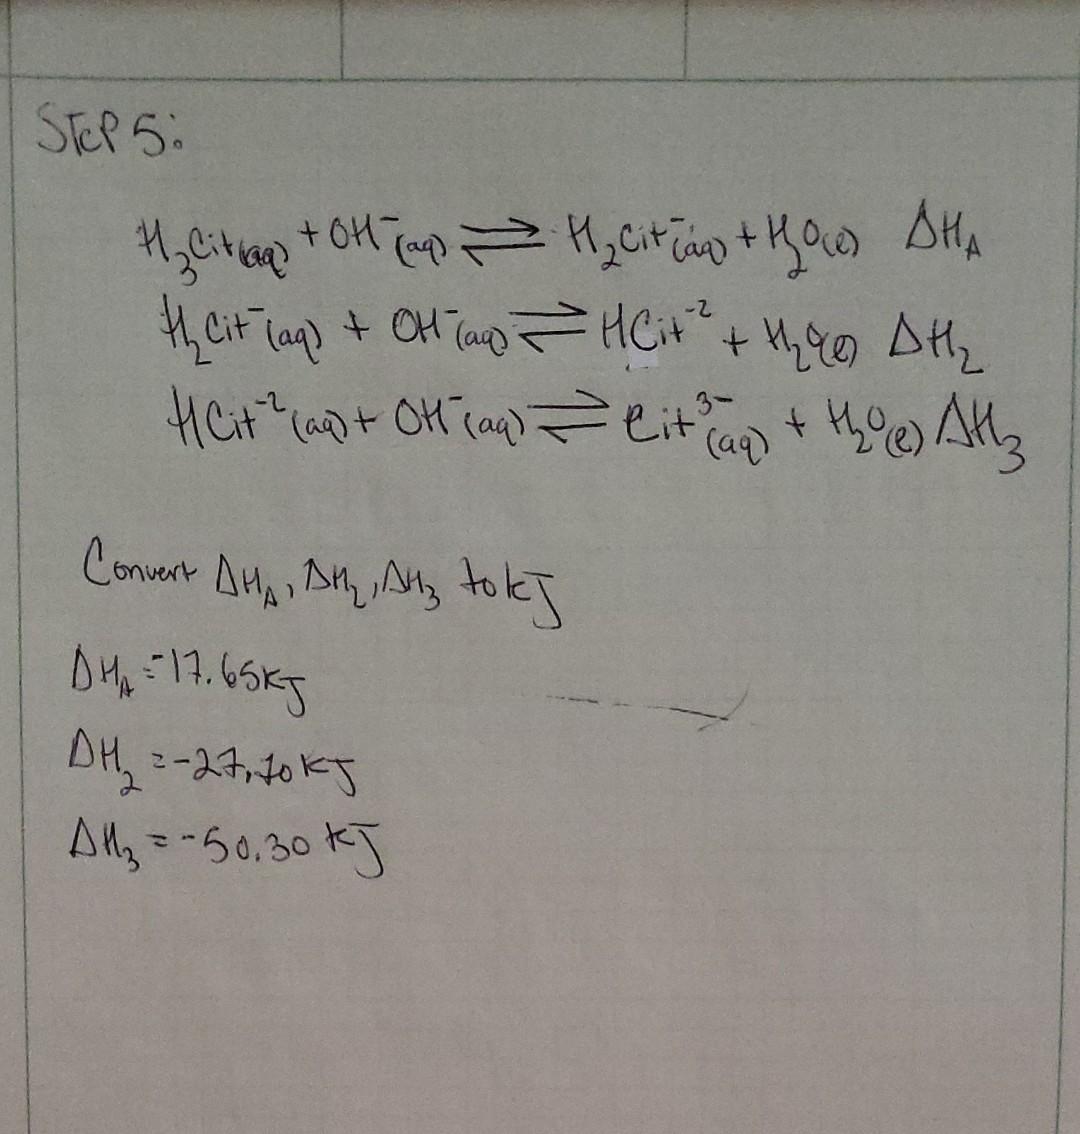 STEP 5:
H₃Cit(aq) + OH⁻(aq) ⇌ H₂Cit⁻(aq) + H₂O(l) ΔH_A
H₂Cit⁻(aq) + OH⁻(aq) ⇌ HCit⁻² + H₂O(l) ΔH₂
HCit⁻²(aq) + OH⁻(aq) ⇌ Cit³⁻(aq) + H₂O(l) ΔH₃
Convert ΔH_A, ΔH₂, ΔH₃ to kJ
ΔH_A = -17.65 kJ
ΔH₂ = -27.70 kJ
ΔH₃ = -50.30 kJ